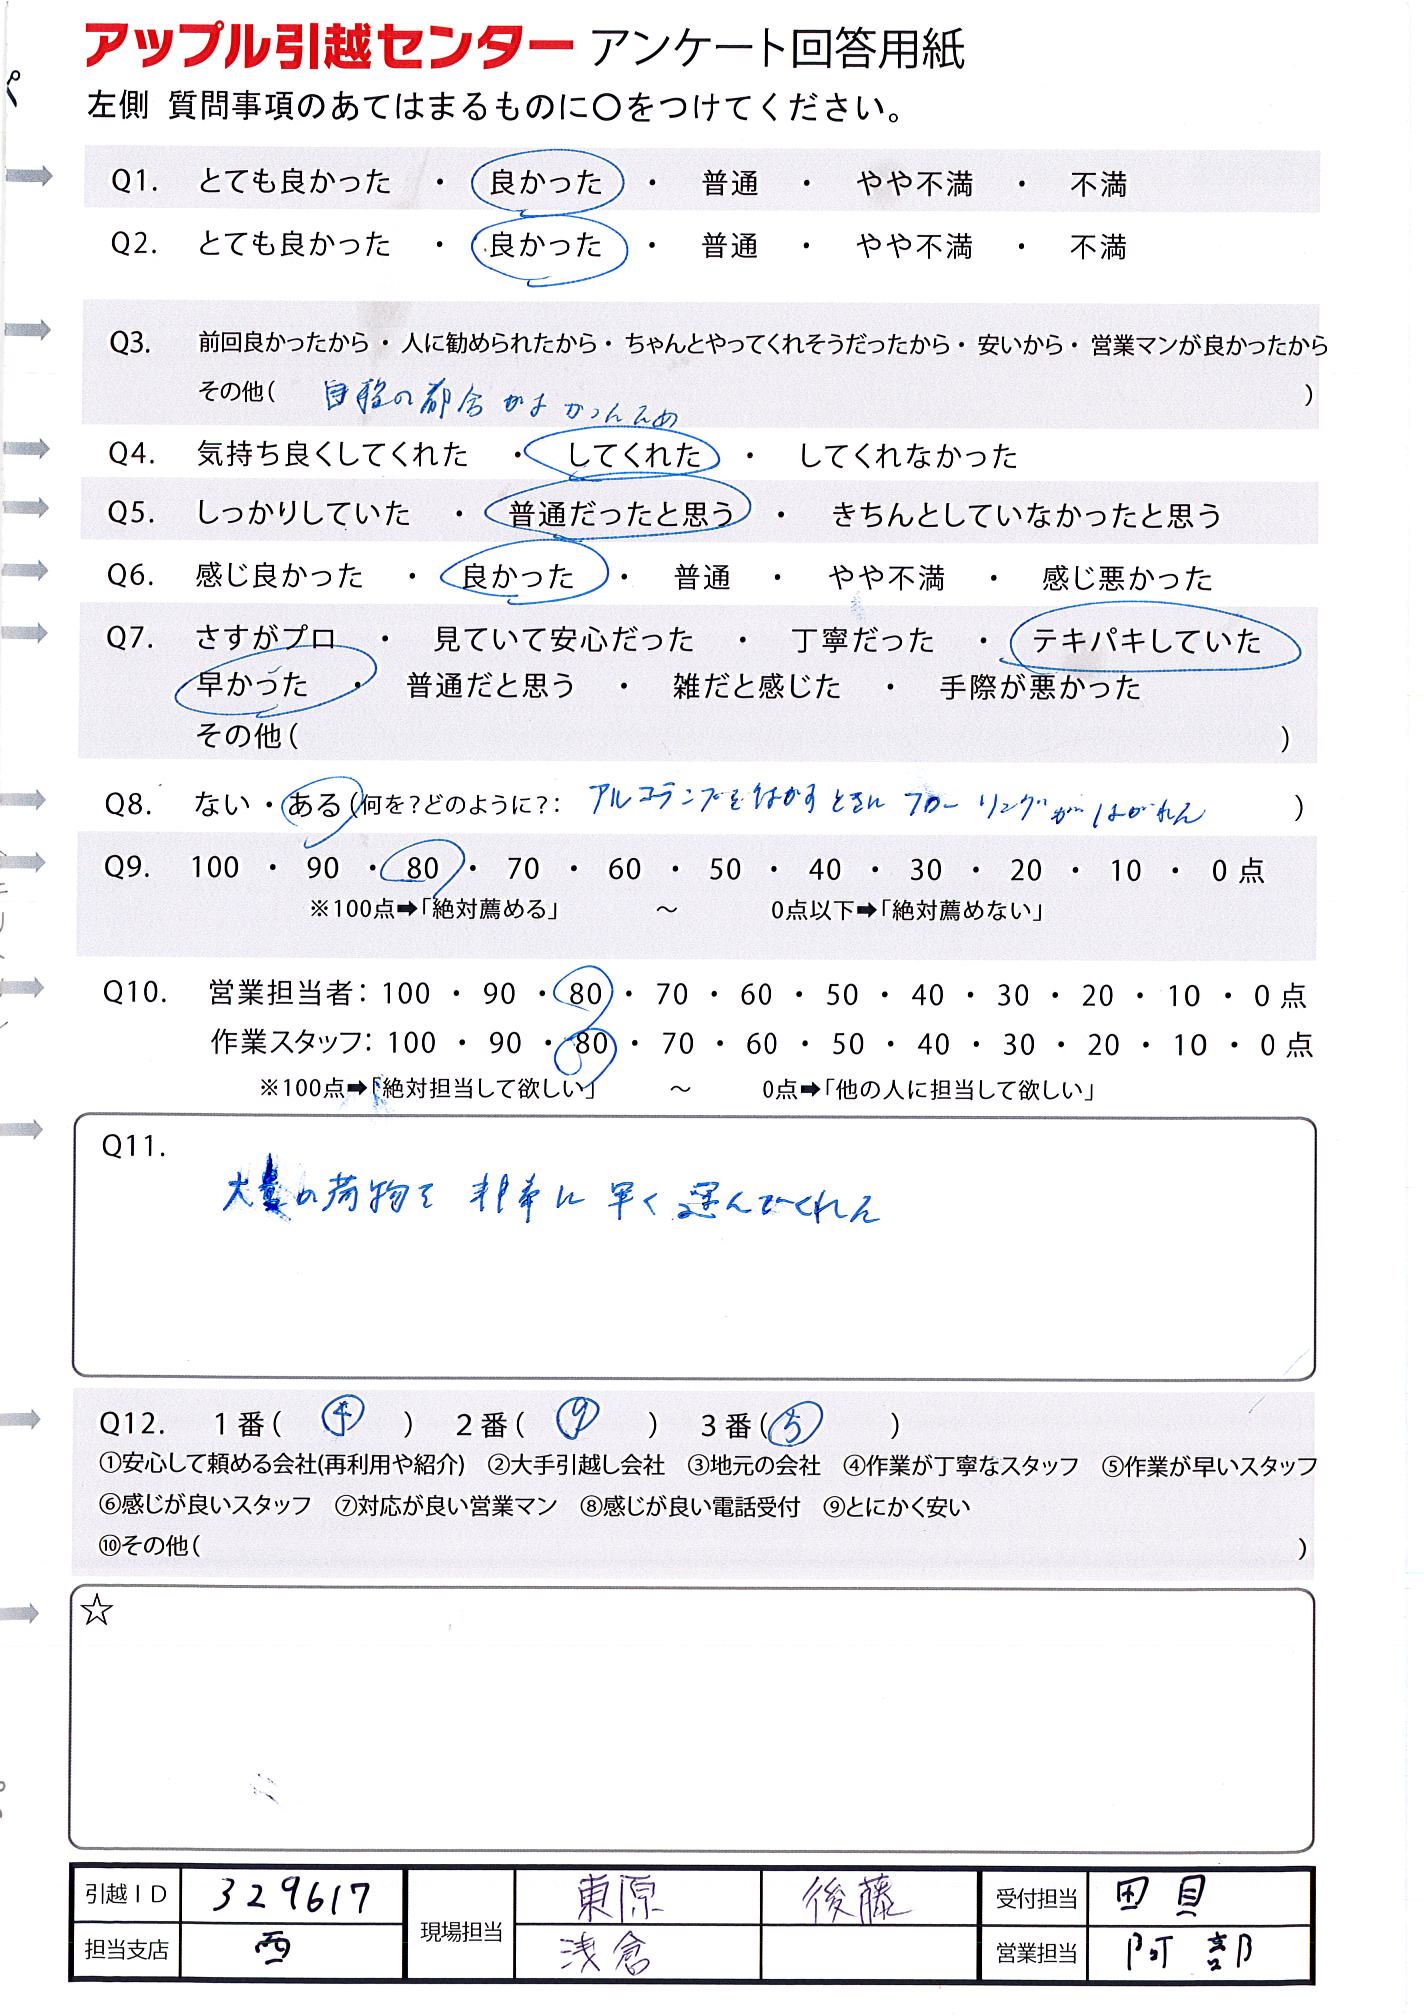 アップル引越センター アンケート回答用紙
左側 質問事項のあてはまるものに○をつけてください。
Q1. とても良かった ・ 良かった ・ 普通 ・ やや不満 ・ 不満
Q2. とても良かった ・ 良かった ・ 普通 ・ やや不満 ・ 不満
Q3. 前回良かったから・人に勧められたから・ちゃんとやってくれそうだったから・安いから・営業マンが良かったから
その他( 日程の都合がよかったため )
Q4. 気持ち良くしてくれた ・ してくれた ・ してくれなかった
Q5. しっかりしていた ・ 普通だったと思う ・ きちんとしていなかったと思う
Q6. 感じ良かった ・ 良かった ・ 普通 ・ やや不満 ・ 感じ悪かった
Q7. さすがプロ ・ 見ていて安心だった ・ 丁寧だった ・ テキパキしていた
早かった ・ 普通だと思う ・ 雑だと感じた ・ 手際が悪かった
その他( )
Q8. ない・ある(何を?どのように?: をはがすときに フローリングがはがれた )
Q9. 100 ・ 90 ・ 80 ・ 70 ・ 60 ・ 50 ・ 40 ・ 30 ・ 20 ・ 10 ・ 0点
※100点➡「絶対薦める」 ～ 0点以下➡「絶対薦めない」
Q10. 営業担当者: 100 ・ 90 ・ 80 ・ 70 ・ 60 ・ 50 ・ 40 ・ 30 ・ 20 ・ 10 ・ 0点
作業スタッフ: 100 ・ 90 ・ 80 ・ 70 ・ 60 ・ 50 ・ 40 ・ 30 ・ 20 ・ 10 ・ 0点
※100点➡「絶対担当して欲しい」 ～ 0点➡「他の人に担当して欲しい」
Q11.
大量の荷物を 非常に 早く 運んでくれた
Q12. 1番( ④ ) 2番( ⑨ ) 3番( ⑤ )
①安心して頼める会社(再利用や紹介) ②大手引越し会社 ③地元の会社 ④作業が丁寧なスタッフ ⑤作業が早いスタッフ
⑥感じが良いスタッフ ⑦対応が良い営業マン ⑧感じが良い電話受付 ⑨とにかく安い
⑩その他( )
☆
引越ID 329617 現場担当 東原 後藤 受付担当 田貝
担当支店 西 浅倉 営業担当 阿部